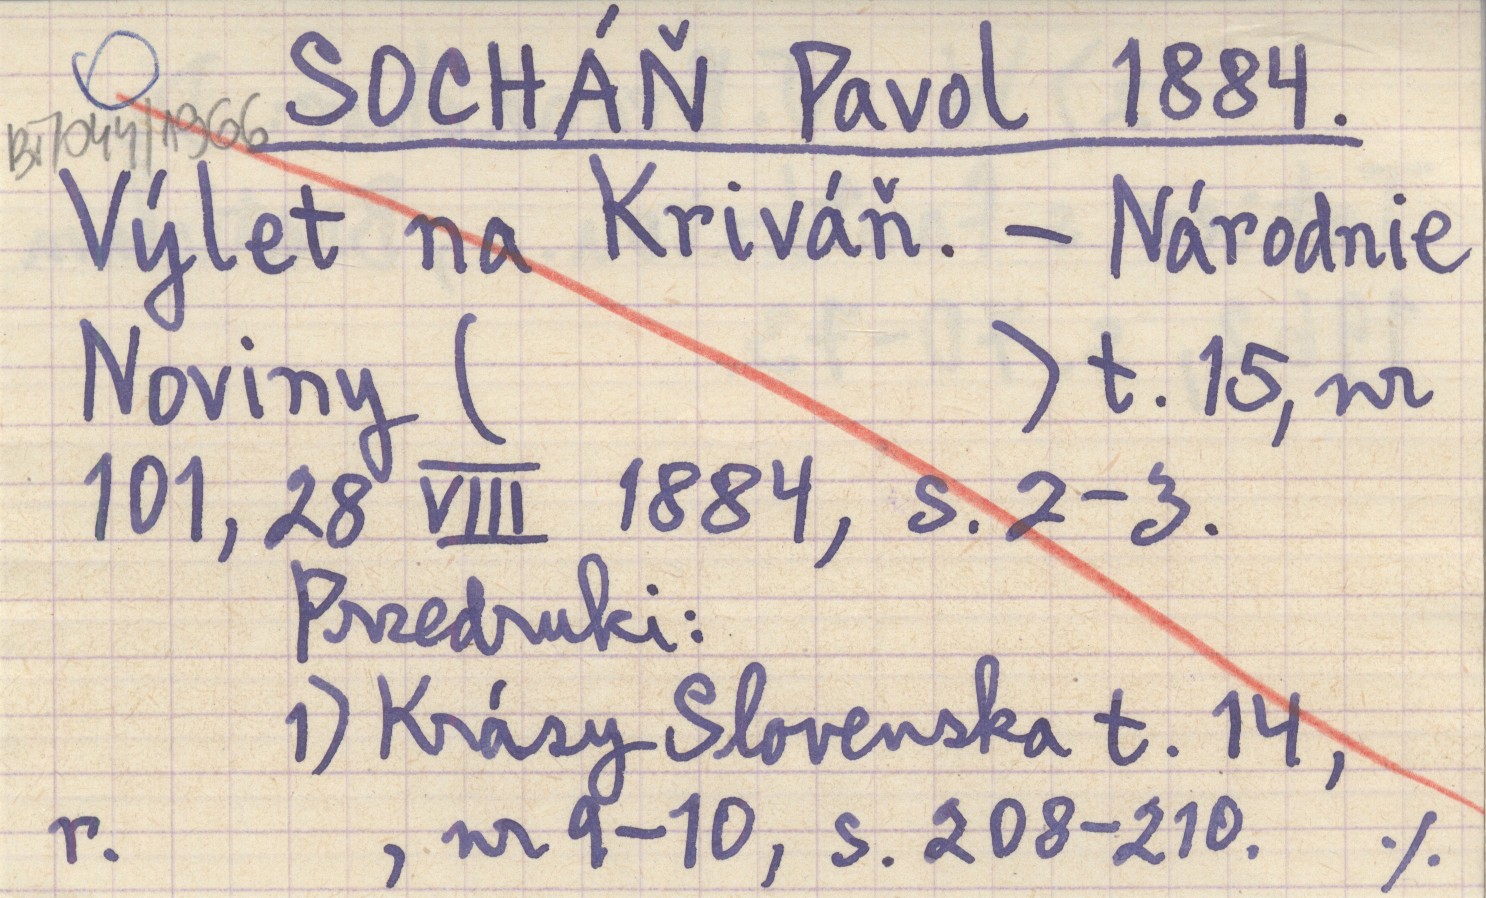 SOCHÁŇ Pavol 1884.
Výlet na Kriváň. – Národnie
Noviny ( ) t. 15, nr
101, 28 VIII 1884, s. 2–3.
Przedruki:
1) Krásy Slovenska t. 14,
r. , nr 9–10, s. 208–210. ·/.